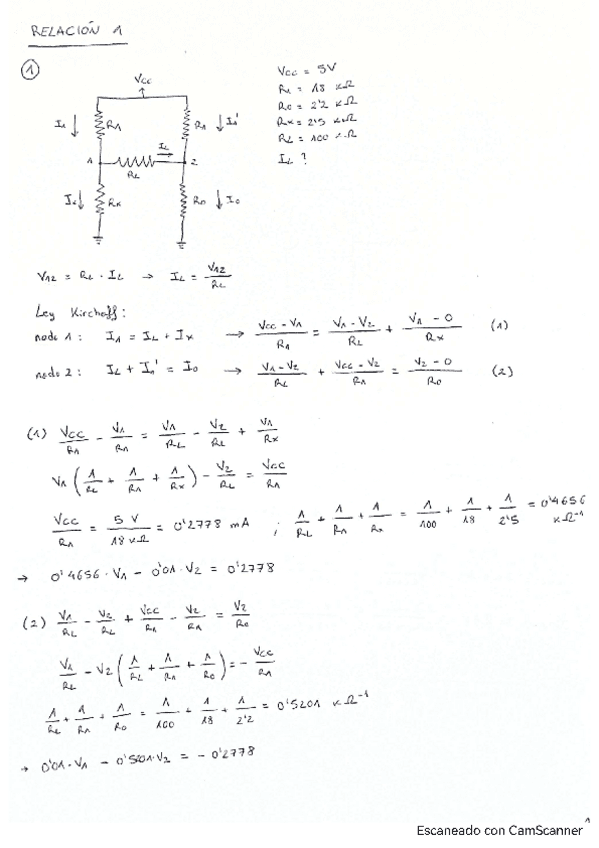 RELACIÓN 1
1
Vcc
I1 R1 R1 I1'
IL
1 2
RL
Ix Rx R0 I0
Vcc = 5V
R1 = 18 kΩ
R0 = 2'2 kΩ
Rx = 2'5 kΩ
RL = 100 kΩ
IL ?
V12 = RL · IL → IL = V12/RL
Ley Kirchoff:
nodo 1: I1 = IL + Ix → (Vcc - V1)/R1 = (V1 - V2)/RL + (V1 - 0)/Rx (1)
nodo 2: IL + I1' = I0 → (V1 - V2)/RL + (Vcc - V2)/R1 = (V2 - 0)/R0 (2)
(1) Vcc/R1 - V1/R1 = V1/RL - V2/RL + V1/Rx
V1 (1/RL + 1/R1 + 1/Rx) - V2/RL = Vcc/R1
Vcc/R1 = 5 V/18 kΩ = 0'2778 mA ; 1/RL + 1/R1 + 1/Rx = 1/100 + 1/18 + 1/2'5 = 0'4656 kΩ⁻¹
→ 0'4656 · V1 - 0'01 · V2 = 0'2778
(2) V1/RL - V2/RL + Vcc/R1 - V2/R1 = V2/R0
V1/RL - V2 (1/RL + 1/R1 + 1/R0) = - Vcc/R1
1/RL + 1/R1 + 1/R0 = 1/100 + 1/18 + 1/2'2 = 0'5201 kΩ⁻¹
→ 0'01 · V1 - 0'5201 · V2 = - 0'2778
1
Escaneado con CamScanner